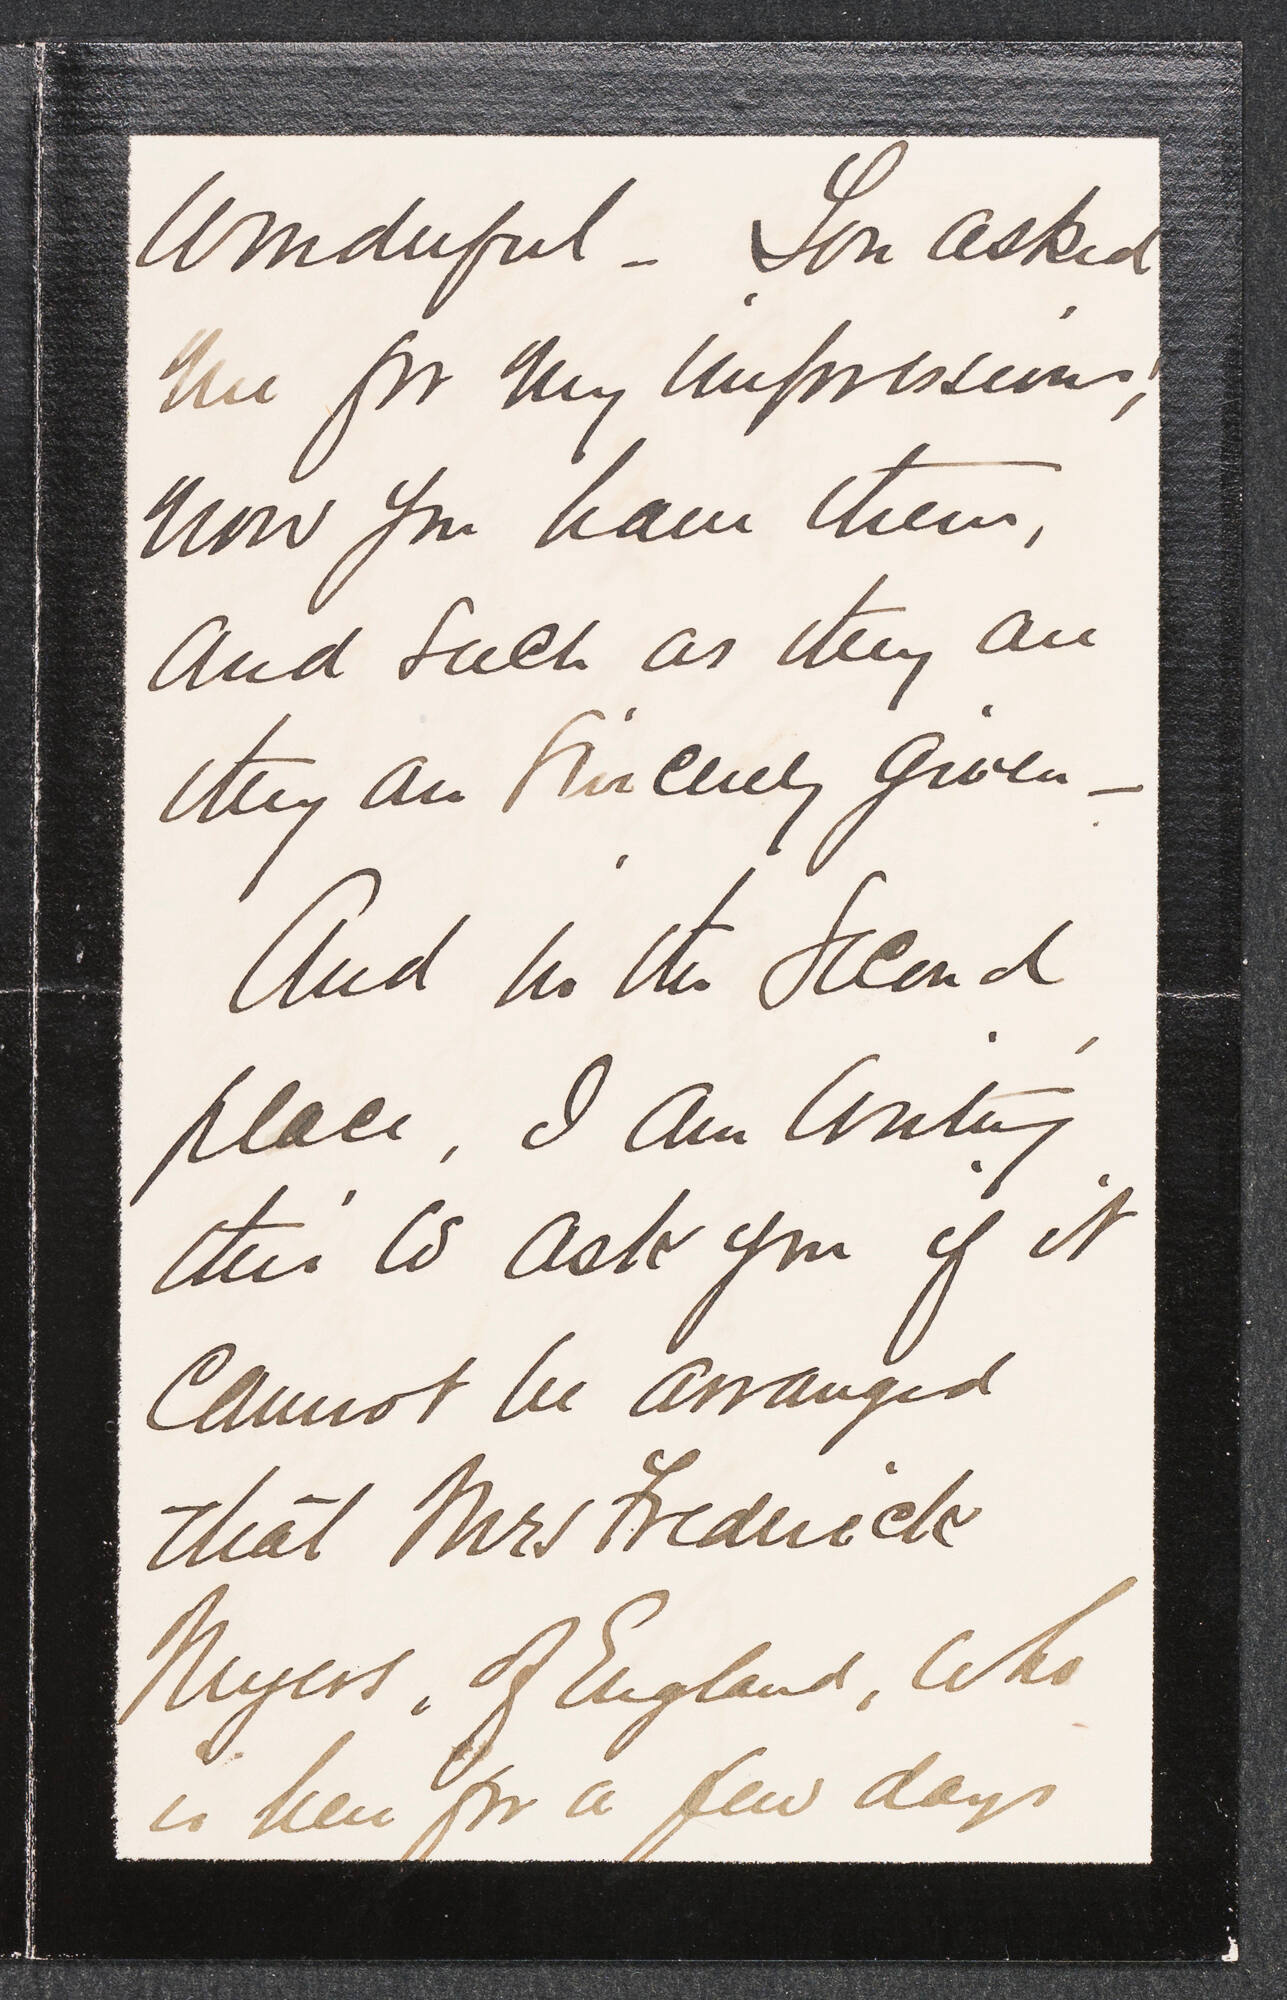 wonderful – You asked
me for my impressions,
now you have them,
and such as they are
they are sincerely given –
And in the second
place, I am writing
this to ask you if it
cannot be arranged
that Mrs Frederick
Myers, of England, who
is here for a few days